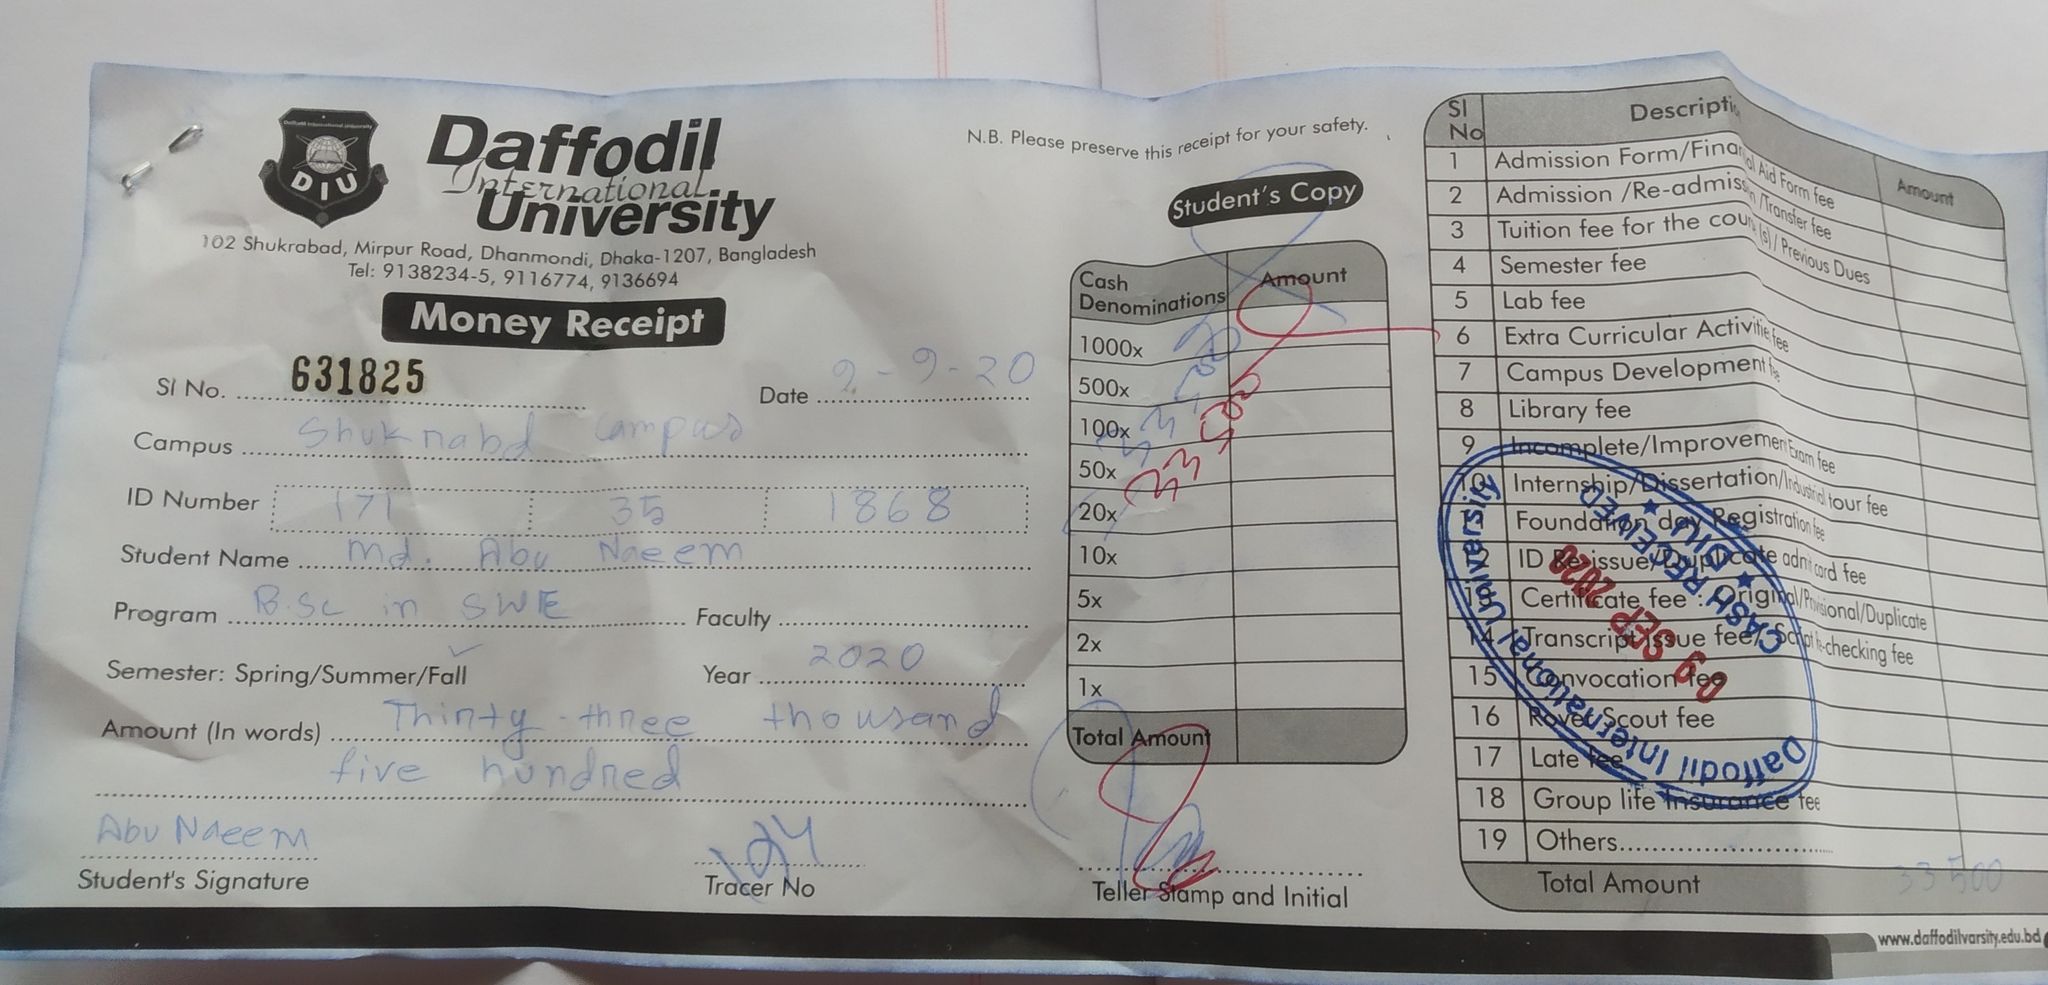 Daffodil International University
DIU
Daffodil
International
University
102 Shukrabad, Mirpur Road, Dhanmondi, Dhaka-1207, Bangladesh
Tel: 9138234-5, 9116774, 9136694
Money Receipt
Sl No. 631825
Date 9-9-20
Campus Shuknabd campus
ID Number 171 35 1868
Student Name Md. Abu Naeem
Program B.Sc in SWE Faculty
Semester: Spring/Summer/Fall ✓ Year 2020
Amount (In words) Thinty-three thousand
five hundred
Abu Naeem
Student's Signature
Tracer No
N.B. Please preserve this receipt for your safety.
Student's Copy
Cash Denominations Amount
1000x
500x
100x
50x
20x
10x
5x
2x
1x
33,500
33,500
Total Amount
Teller Stamp and Initial
Sl No Description Amount
1 Admission Form/Financial Aid Form fee
2 Admission /Re-admission /Transfer fee
3 Tuition fee for the course(s) / Previous Dues
4 Semester fee
5 Lab fee
6 Extra Curricular Activities fee
7 Campus Development fee
8 Library fee
9 Incomplete/Improvement Exam fee
10 Internship/Dissertation/Industrial tour fee
11 Foundation day Registration fee
12 ID Re-issue/Duplicate admit card fee
13 Certificate fee : Original/Provisional/Duplicate
14 Transcript issue fee/ Script Re-checking fee
15 Convocation fee
16 Rover Scout fee
17 Late fee
18 Group life Insurance fee
19 Others
Total Amount 33500
Daffodil International University
★ DIU ★
CASH RECEIVED
09 SEP 2020
www.daffodilvarsity.edu.bd